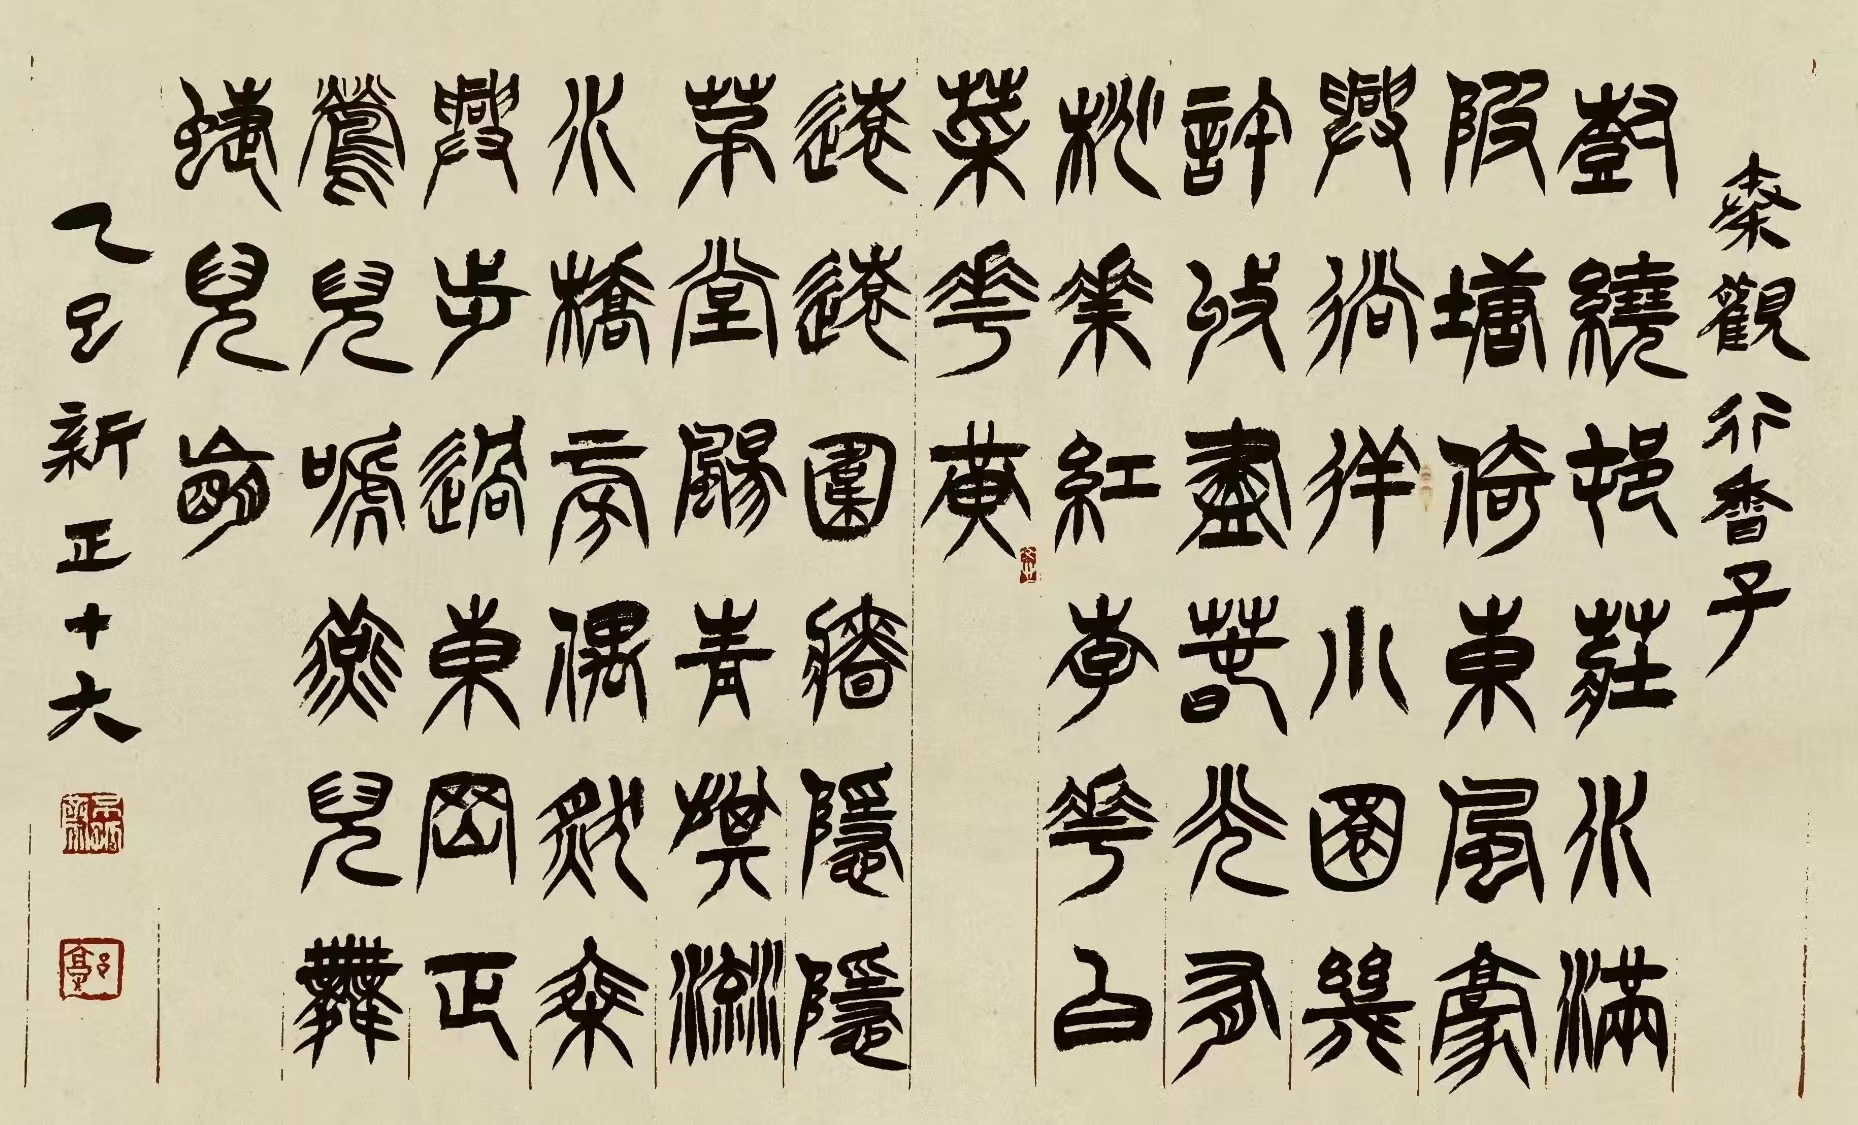 秦觀行香子
樹繞邨莊水滿
陂塘倚東風豪
興徜徉小園幾
許收盡春光有
桃花紅李花白
菜花黃
遠遠圍牆隱隱
茅堂颺青旗流
水橋旁偶然乘
興步過東岡正
鶯兒嗁燕兒舞
蜨兒忙
乙巳新正十六